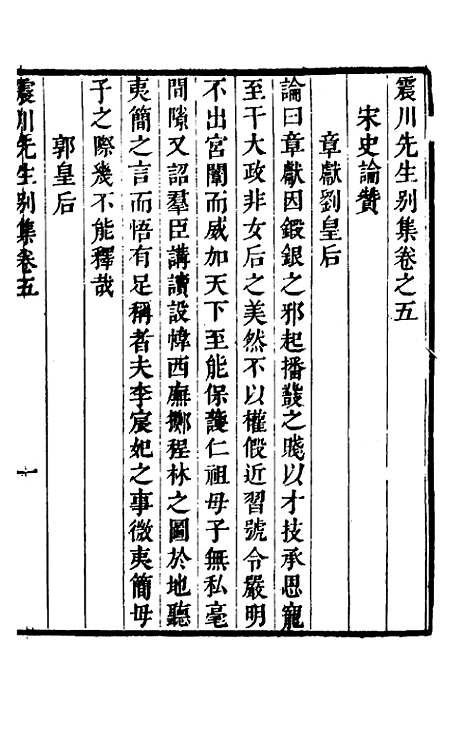 震川先生別集卷之五
宋史論贊
章獻劉皇后
論曰章獻因鍛銀之邪起播鼗之賤以才技承恩寵
至干大政非女后之美然不以權假近習號令嚴明
不出宮闈而威加天下至能保護仁祖母子無私毫
間隙又詔羣臣講讀設幃西廡擲程林之圖於地聽
夷簡之言而悟有足稱者夫李宸妃之事微夷簡母
子之際幾不能釋哉
郭皇后
震川先生別集卷五
一